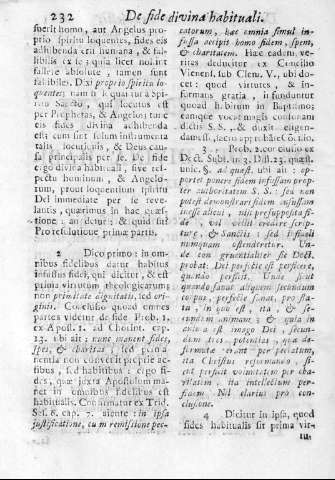 232 De fide divina habituali.
fuerit homo, aut Angelus pro-
prio spiritu loquentes, fides eis
adhibenda erit humana, & fal-
sibilis ex se; quia licet non int
fallere absolute, tamen sunt
falsibiles. Dixi proprio spiritu lo-
quentes: nam si loquatur à spi-
ritu Sancto, qui locutus est
per Prophetas, & Angelos; tunc
eis fides divina adhibenda
est cum sint solum instrumenta
talis locutionis, & Deus cau-
sa principalis per se. De fide
ergo divina habituali, sive res-
pectu hominis, & Angelo-
rum, prout loquentium spiritu
Dei immediate per se reve-
lantis, quærimus in hac quæs-
tione: an detur; & quid sit?
Pro resolutione primæ partis.
2 Dico primo: in om-
nibus fidelibus datur habitus
infusus fidei, qui dicitur, & est
prima virtutum theologicarum;
non primitate dignitatis, sed ori-
ginis. Conclusio quoad omnes
partes videtur de fide. Prob. 1.
ex Apost. 1. ad Chorint. cap.
13. ubi ait: nunc manent fides,
spes, & charitas, sed prima-
nentia non convenit propriè ac-
tibus, sed habitibus: ergo fi-
des, quæ juxta Apostolum ma-
net in omnibus fidelibus est
habitualis. Confirmatur ex Trid.
Ses. 6. cap. 7. aiente: in ipsa
justificatione, cu in remissione pec-
catorum, hæc omnia simul in-
fussa accipit homo fidem, spem,
& charitatem. Hæc eadem ve-
ritas deducitur ex Concilio
Vienens. sub Clem. V., ubi do-
cet: quod virtutes, &
informans gratia, infunduntur
quoad habitum in Baptismo;
eamque vocat magis consonam
dictis S.S., & duxit eligen-
dam est, sacro approbate Cõcilio.
3 Prob. 2. conclusio ex
Doct. Subt. in 3. Dist. 23. quæst.
unic. §. ad quæst. ubi ait:
oportet ponere fidem infussam prop-
ter authoritatem S. S.: sed non
potest demonstrari fidem infussam
inesse alicui, nisi presupposita fi-
de, vel velit credere scrip-
turæ, & Sanctis: sed infideli
nunquam ostenderetur. Un-
de con gruentialiter sic Doct.
probat. Dei perfectio est perficere,
quando perficit. Unde sicut
quando sanat aliquem secundum
corpus, perfectè sanat,
ta, in quo est, ita, &
secundum animam; & quia in
anima est imago Dei, secun-
dum tres, potentias, quæ de-
formatæ erant per peccatum,
ita Christus reformando,
ut perficit voluntatem per cha-
ritatem, ita intellectum per
fidem. Nil clarius pro con-
clusione.
4 Dicitur in ipsa, quod
fides habitualis sit prima vir-
tu-